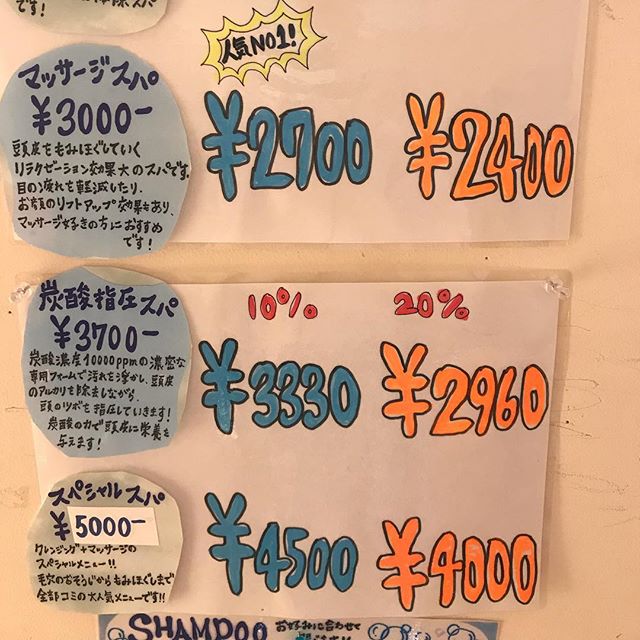 です!
人気NO1!
マッサージスパ
¥3000-
頭皮をもみほぐしていく
リラクゼーション効果大のスパです。
目の疲れを軽減したり、
お顔のリフトアップ効果もあり、
マッサージ好きの方におすすめ
です!
¥2700
¥2400
炭酸指圧スパ
¥3700-
炭酸濃度10000ppmの濃密な
専用フォームで汚れを浮かし、頭皮
のアルカリを除去しながら、
頭のツボを指圧していきます!
炭酸の力で頭皮に栄養を
与えます!
10%
20%
¥3330
¥2960
スペシャルスパ
¥5000-
クレンジング+マッサージの
スペシャルメニュー!!
毛穴のおそうじからもみほぐしまで
全部コミの大人気メニューです!!
¥4500
¥4000
SHAMPOO
お好みに合わせて